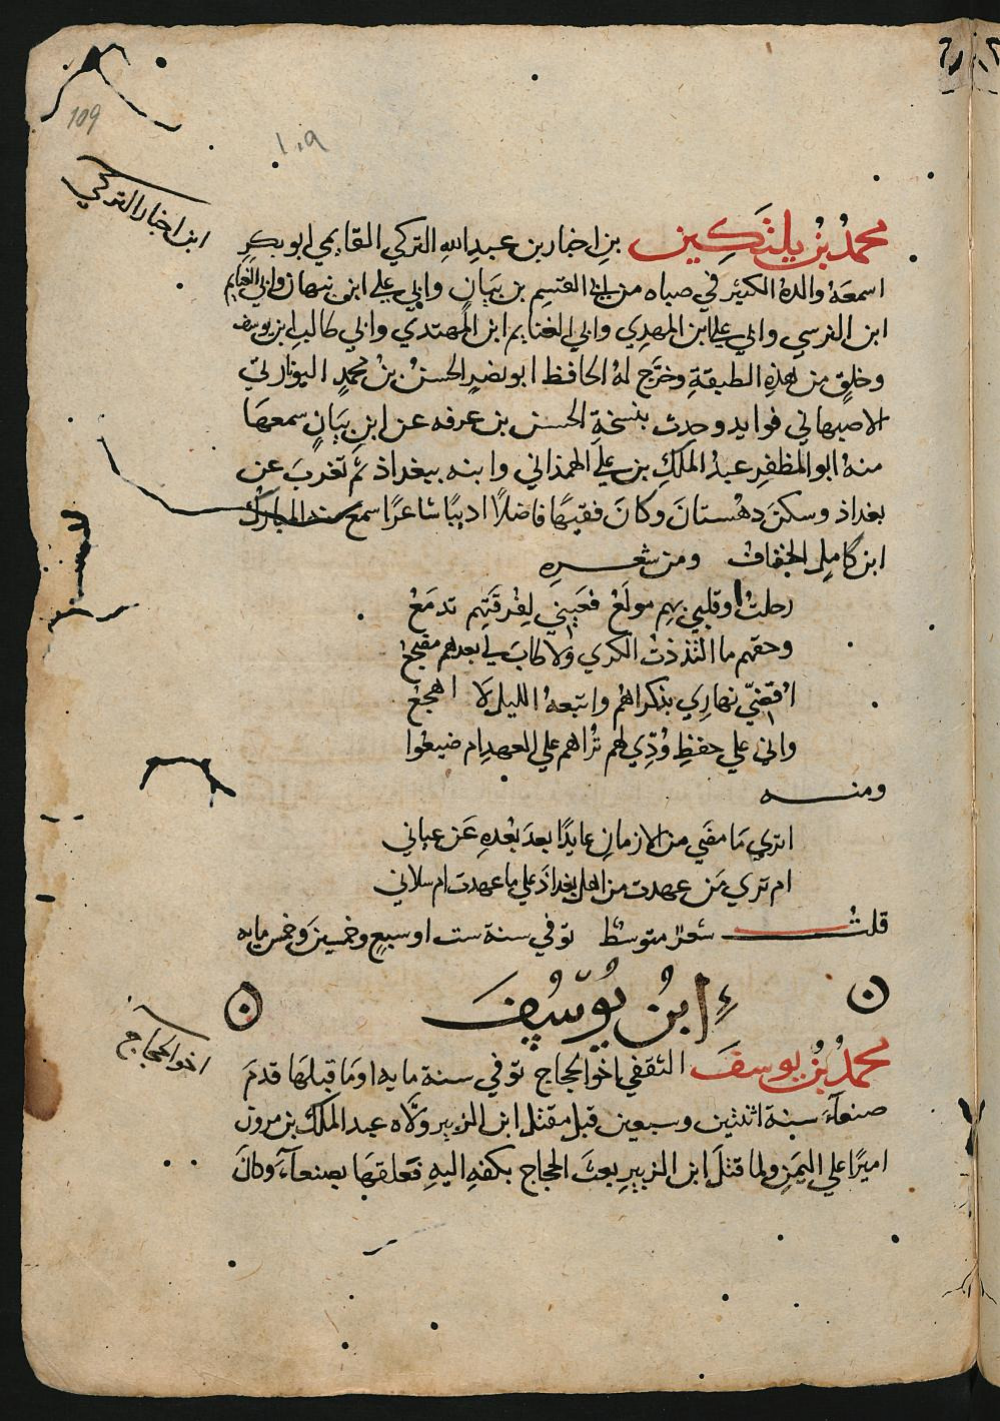 109
١٠٩
ابن اخبار التركي
محمدُ بنُ يلتَكِين بنِ اخبار بن عبدِ الله التركي القايمي ابو بكرٍ
اسمعَهُ والدهُ الكثيرَ في صباه من ابي القسِم بن بَيَانٍ وابي علي ابن نبهان وابي الغنايم
ابن النرسي وابي علي ابن المهدِي وابي الغنايم ابن المهتدي وابي طالب ابن يوسف
وخلقٍ من هذِهِ الطبقةِ وخرَّج لهُ الحافظ ابو نضرٍ الحسنُ بنُ محمدٍ اليونارتيّ
الاصبهاني فوايد وحدث بنسخةِ الحسن بن عرفه عن ابن بَيَانٍ سمعهَا
منهُ ابو المظفرِ عبدُ الملكِ بن علي الهمذاني وابنه ببغداذ ثُم تغربَ عن
بغداذ وسكن دهْستانَ وكانَ فقيهًا فاضلًا اديبًا شاعرًا سمعَ منه المباركُ
ابن كاملِ الخفاف ومن شعرِهِ
رحلتُ وقلبي بهِم مولَعُ فعَيني لِفُرقَتِهِم تدمَعُ
وحقهِم ما التذذتُ الكَري ولا طابَ لي بعدهم مضجعُ
اقضّي نهارِي بذكراهُم واتبعهُ الليل لا اهجعُ
واني علي حفظِ وُدِّي لهم تُراهم علي العهدِ ام ضيعُوا
ومنه
اتري مَا مضَي من الازمانِ عايدًا بعدَ بُعْدِهِ عَن عياني
ام تري مَن عهدت من اهل بغداذ علي ما عهدت ام سلاني
قلتُ شعرٌ متوسطٌ توفي سنة ست او سبعٍ وخمسينَ وخمس مايه
ن ابنُ يُوسُفَ ن
اخو الحجاج
محمدُ بنُ يوسفَ الثقفي اخو الحجاج توفي سنة مايه اومَا قبلهَا قدمَ
صنعآءَ سنة اثنتين وسبعين قبل مقتل ابن الزبير ولّاه عبد الملك بن مرون
اميرًا علي اليمَنِ ولما قتلَ ابن الزبيرِ بعثَ الحجاج بكفهِ اليهِ فعلقهَا بصنعآءَ وكانَ